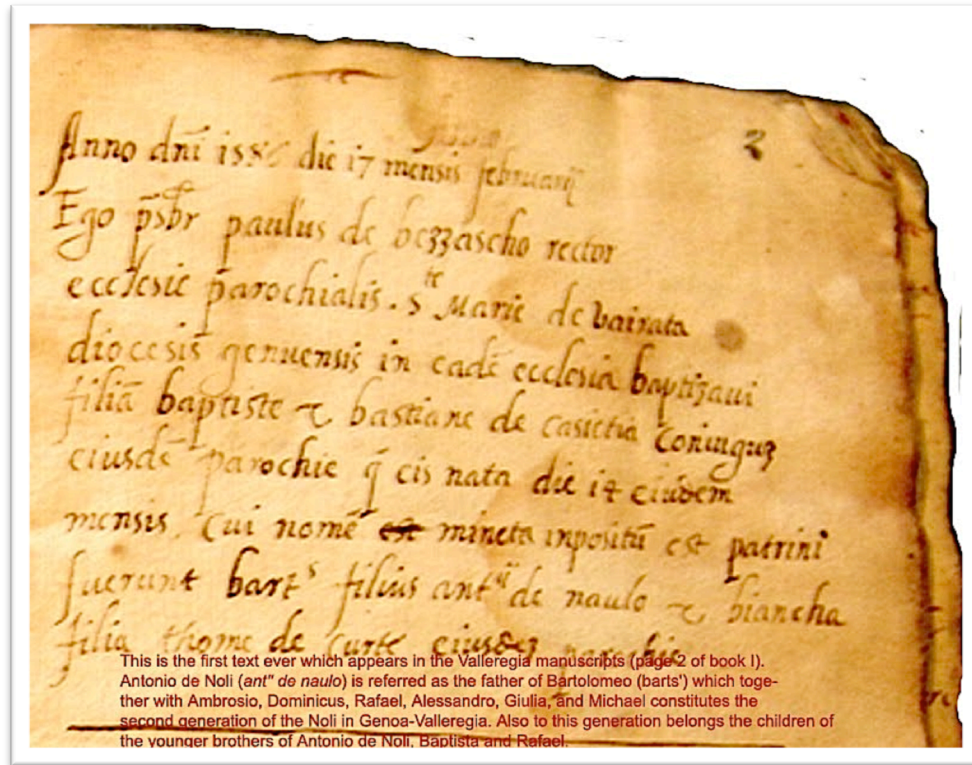 2
Anno dni 155 die 17 mensis februarij
Ego psbr paulus de bezzascho rector
ecclesie parochialis. s te Marie de bairata
diocesis genuensis in eadē ecclesia baptizaui
filiā baptiste & bastiane de casictia coniuguz
eiusdē parochie q̄ eis nata die 14 eiusdem
mensis. Cui nomē est mineta inpositū est patrini
fuerunt bart s filius ant ii de naulo & biancha
filia thome de curte eiusdez parochie
This is the first text ever which appears in the Valleregia manuscripts (page 2 of book I).
Antonio de Noli (ant" de naulo) is referred as the father of Bartolomeo (barts') which toge-
ther with Ambrosio, Dominicus, Rafael, Alessandro, Giulia, and Michael constitutes the
second generation of the Noli in Genoa-Valleregia. Also to this generation belongs the children of
the younger brothers of Antonio de Noli, Baptista and Rafael.